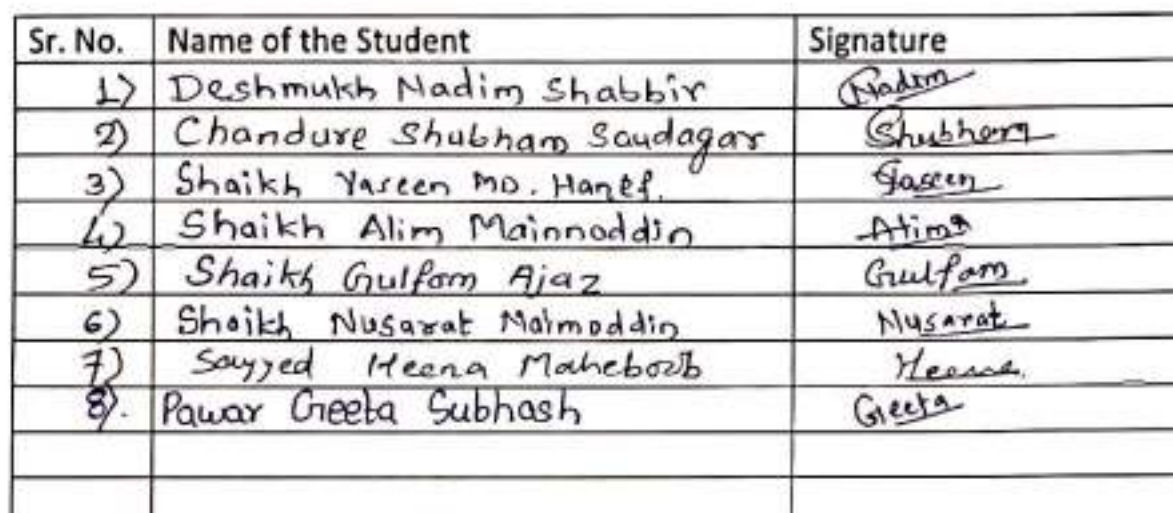 Sr. No. Name of the Student Signature
1) Deshmukh Nadim Shabbir Nadim
2) Chandure Shubham Saudagar Shubham
3) Shaikh Yaseen MD. Hanef. Yaseen
4) Shaikh Alim Mainnoddin Alim
5) Shaikh Gulfam Ajaz Gulfam
6) Shaikh Nusarat Moimoddin Nusarat
7) Sayyed Heena Maheboob Heena
8). Pawar Geeta Subhash Geeta